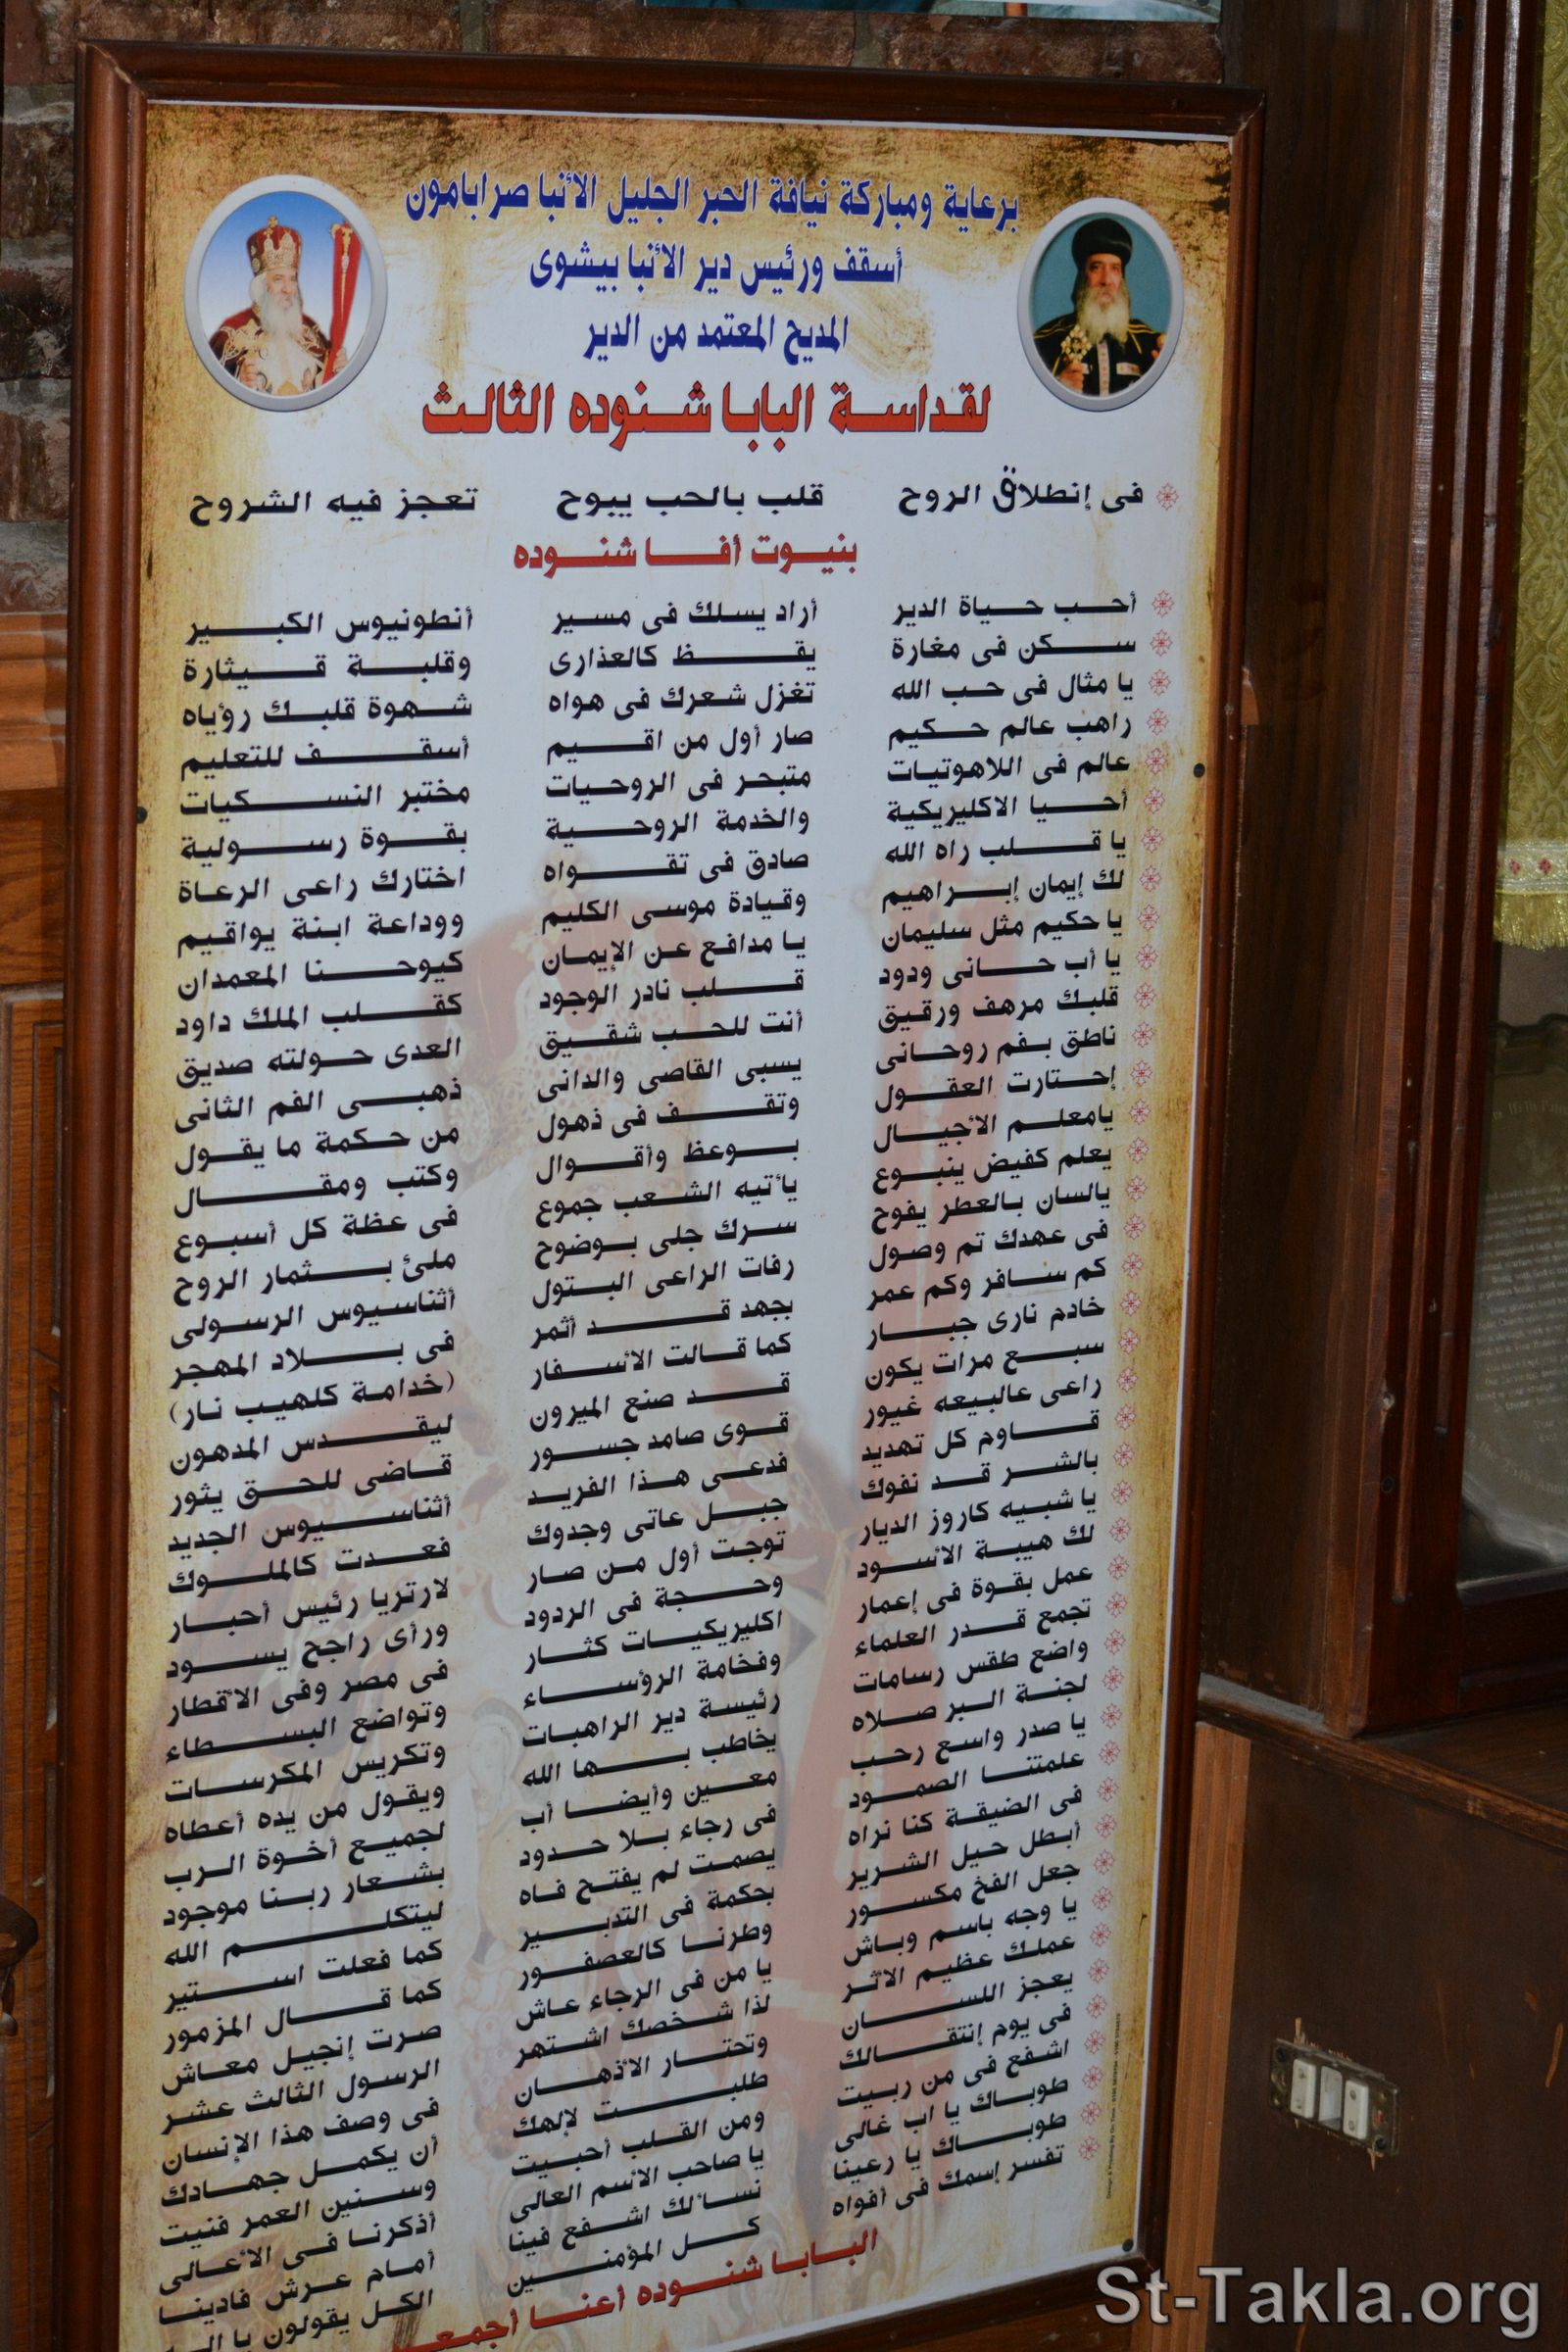 برعاية ومباركة نيافة الحبر الجليل الأنبا صرابامون
أسقف ورئيس دير الأنبا بيشوى
المديح المعتمد من الدير
لقداسة البابا شنوده الثالث
فى إنطلاق الروح قلب بالحب يبوح تعجز فيه الشروح
بنيوت أفا شنوده
أحب حياة الدير أراد يسلك فى مسير أنطونيوس الكبير
سكن فى مغارة يقظ كالعذارى وقلبة قيثارة
يا مثال فى حب الله تغزل شعرك فى هواه شهوة قلبك رؤياه
راهب عالم حكيم صار أول من اقيم أسقف للتعليم
عالم فى اللاهوتيات متبحر فى الروحيات مختبر النسكيات
أحيا الاكليريكية والخدمة الروحية بقوة رسولية
يا قلب راه الله صادق فى تقواه اختارك راعى الرعاة
لك إيمان إبراهيم وقيادة موسى الكليم ووداعة ابنة يواقيم
يا حكيم مثل سليمان يا مدافع عن الإيمان كيوحنا المعمدان
يا أب حانى ودود قلب نادر الوجود كقلب الملك داود
قلبك مرهف ورقيق أنت للحب شقيق العدى حولته صديق
ناطق بفم روحانى يسبى القاصى والدانى ذهبى الفم الثانى
إحتارت العقول وتقف فى ذهول من حكمة ما يقول
يامعلم الأجيال بوعظ وأقوال وكتب ومقال
يعلم كفيض ينبوع يأتيه الشعب جموع فى عظة كل أسبوع
يالسان بالعطر يفوح سرك جلى بوضوح ملئ بثمار الروح
فى عهدك تم وصول رفات الراعى البتول أثناسيوس الرسولى
كم سافر وكم عمر بجهد قد أثمر فى بلاد المهجر
خادم نارى جبار كما قالت الأسفار (خدامة كلهيب نار)
سبع مرات يكون قد صنع الميرون ليقدس المدهون
راعى عالبيعه غيور قوى صامد جسور قاضى للحق يثور
قاوم كل تهديد فدعى هذا الفريد أثناسيوس الجديد
بالشر قد نفوك جبل عاتى وجدوك فعدت كالملوك
يا شبيه كاروز الديار توجت أول من صار لارتريا رئيس أحبار
لك هيبة الأسود وحجة فى الردود ورأى راجح يسود
عمل بقوة فى إعمار اكليريكيات كثار فى مصر وفى الأقطار
تجمع قدر العلماء وفخامة الرؤساء وتواضع البسطاء
واضع طقس رسامات رئيسة دير الراهبات وتكريس المكرسات
لجنة البر صلاه يخاطب بها الله ويقول من يده أعطاه
يا صدر واسع رحب معين وأيضا أب لجميع أخوة الرب
علمتنا الصمود فى رجاء بلا حدود بشعار ربنا موجود
فى الضيقة كنا نراه يصمت لم يفتح فاه ليتكلم الله
أبطل حيل الشرير بحكمة فى التدبير كما فعلت استير
جعل الفخ مكسور وطرنا كالعصفور كما قال المزمور
يا وجه باسم وباش يا من فى الرجاء عاش صرت إنجيل معاش
عملك عظيم الأثر لذا شخصك اشتهر الرسول الثالث عشر
يعجز اللسان وتحتار الأذهان فى وصف هذا الإنسان
فى يوم إنتقالك طلبت لإلهك أن يكمل جهادك
اشفع فى من ربيت ومن القلب أحببت وسنين العمر فنيت
طوباك يا اب غالى يا صاحب الأسم العالى أذكرنا فى الأعالى
طوباك يا رعينا نسألك اشفع فينا أمام عرش فادينا
تفسر إسمك فى أفواه كل المؤمنين الكل يقولون يا
البابا شنوده أعنا
St-Takla.org